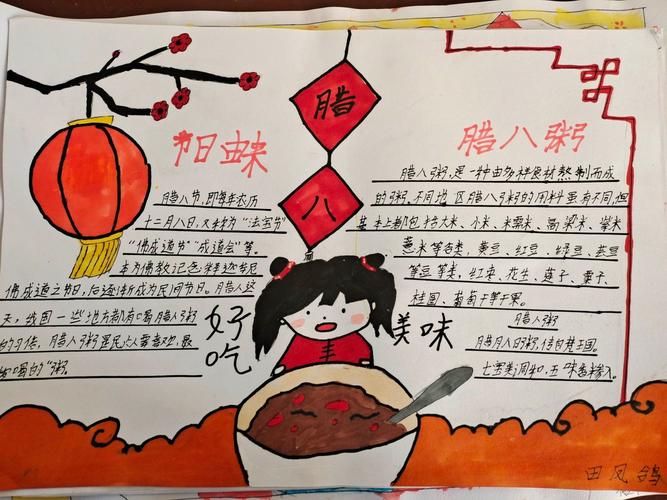 腊
八
节日由来
腊八节,即每年农历
十二月八日,又称为“法宝节”
“佛成道节”“成道会”等。
本为佛教纪念释迦牟尼
佛成道之节日,后逐渐成为民间节日。腊八这
天,我国一些地方都有喝腊八粥
的习俗,腊八粥是民人喜欢,最
喝的“粥
好吃
美味
腊八粥
腊八粥,是一种由多样食材熬制而成
的粥,不同地区腊八粥的用料虽有不同,但
基本上都包括大米、小米、糯米、高粱米、紫米
薏米等谷类,黄豆、红豆、绿豆、芸豆
等豆等类,红枣、花生、莲子、栗子、
桂园、葡萄干等干果。
腊八粥
腊月八日粥,传自梵王国。
七宝美调和,五味香糁入。
田凤鸽